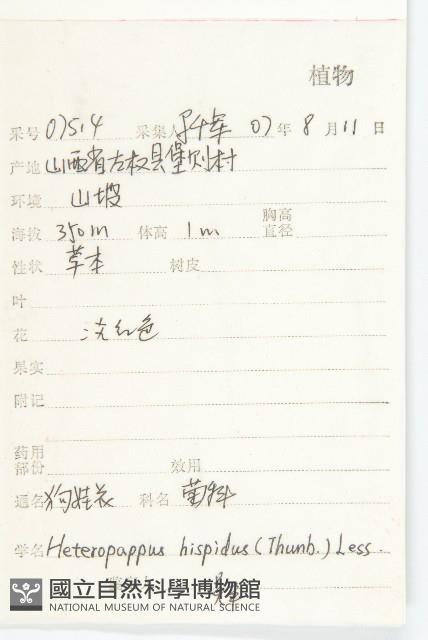 植物
采号 07514 采集人 07年 8月 11日
产地 山西省左权县堡则村
环境 山坡
胸高
海拔 350m 体高 1m 直径
性状 草本 树皮
叶
花 淡红色
果实
附记
药用
部份 效用
通名 狗娃花 科名 菊科
学名 Heteropappus hispidus (Thunb.) Less.
國立自然科學博物館
NATIONAL MUSEUM OF NATURAL SCIENCE